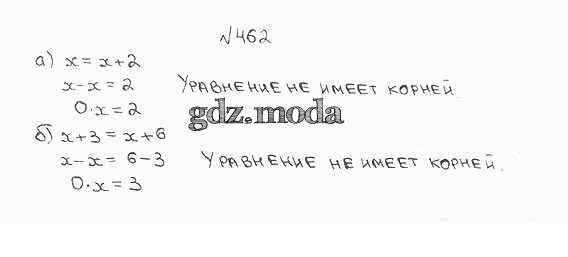 №462
а) x = x+2
x-x = 2 Уравнение не имеет корней.
0·x = 2
gdz.moda
б) x+3 = x+6
x-x = 6-3 Уравнение не имеет корней.
0·x = 3